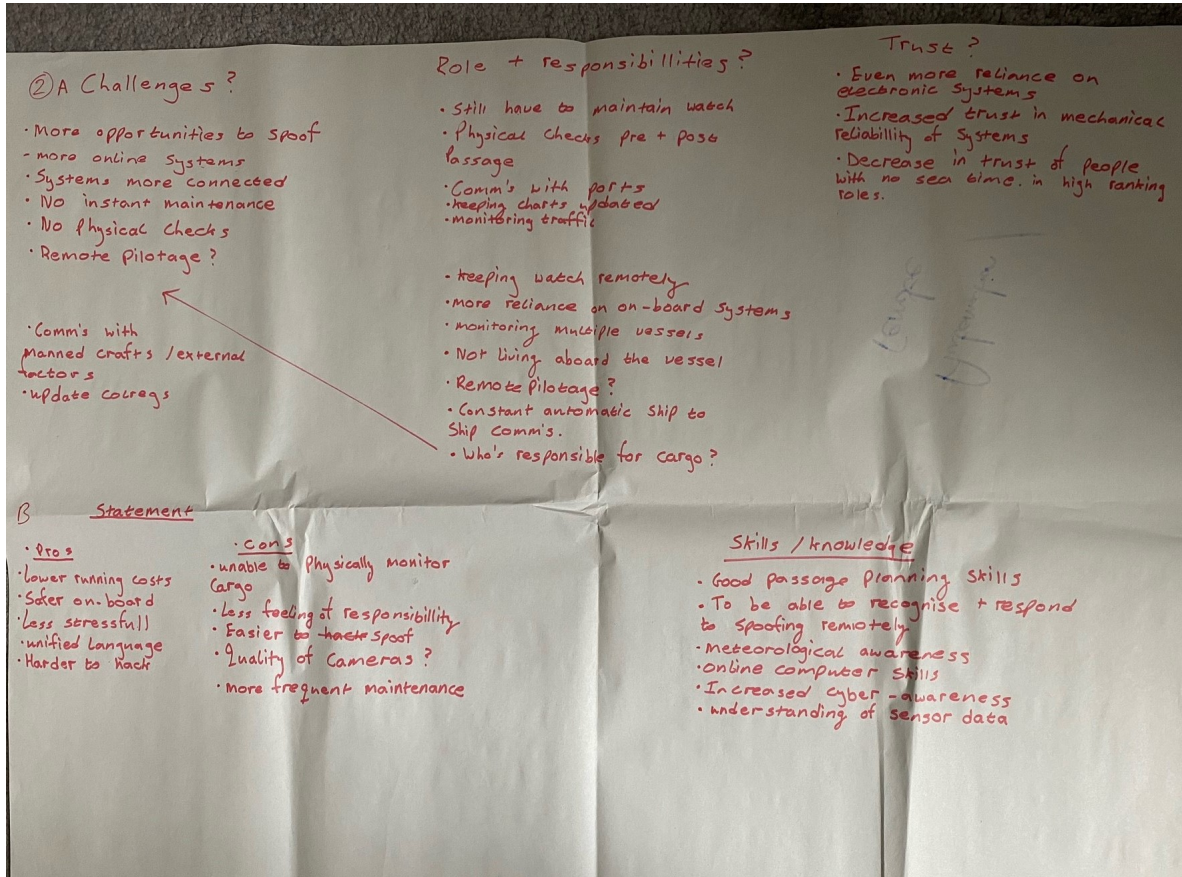 ② A Challenges?
• More opportunities to spoof
- more online systems
• Systems more connected
• No instant maintenance
• No Physical Checks
• Remote Pilotage?
• Comm's with
manned crafts / external
factors
• update colregs
Role + responsibillities?
• Still have to maintain watch
• Physical Checks pre + post
Passage
• Comm's with ports
• keeping charts updated
• monitoring traffic
• keeping watch remotely
• more reliance on on-board systems
• monitoring multiple vessels
• Not living aboard the vessel
• Remote Pilotage?
• Constant automatic Ship to
Ship Comm's.
• Who's responsible for cargo?
Trust?
• Even more reliance on
electronic Systems
• Increased trust in mechanical
reliabillity of Systems
• Decrease in trust of people
with no sea time. in high ranking
roles.
B Statement
• Pros
• lower running costs
• Safer on-board
• Less stressfull
• unified language
• Harder to hack
• Cons
• unable to Physically monitor
Cargo
• Less feeling of responsibillity
• Easier to hack spoof
• Quality of Cameras?
• more frequent maintenance
Skills / knowledge
• Good passage planning skills
• To be able to recognise + respond
to spoofing remotely
• meteorological awareness
• online computer skills
• Increased cyber-awareness
• understanding of sensor data